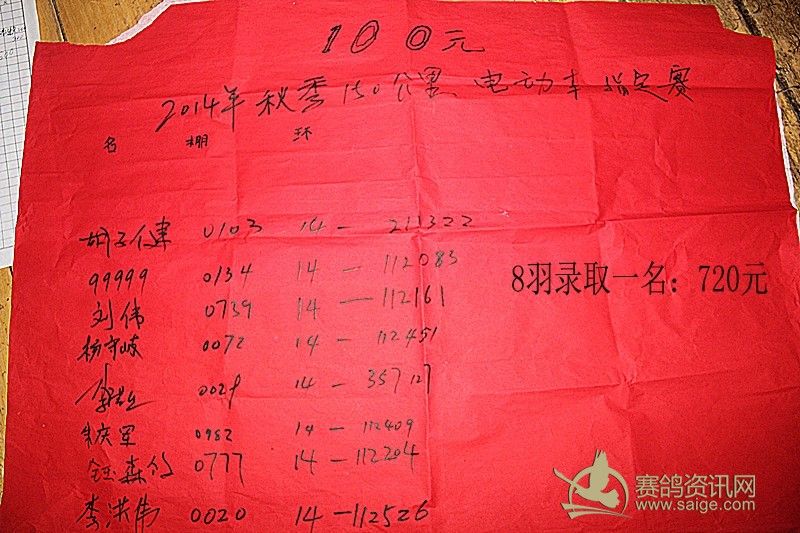 100元
2014年秋季150公里电动车指定赛
名 棚 环
0103 14-211322
99999 0134 14-112083
8羽录取一名：720元
刘伟 0739 14-112161
杨守岐 0072 14-112451
0029 14-357127
朱庆军 0982 14-112409
钰森 0777 14-112204
李洪伟 0020 14-112526
赛鸽资讯网
www.saige.com